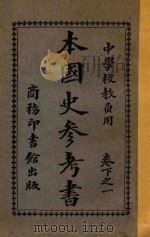 中學校教員用
卷下之一
本國史参考書
商務印書館出版